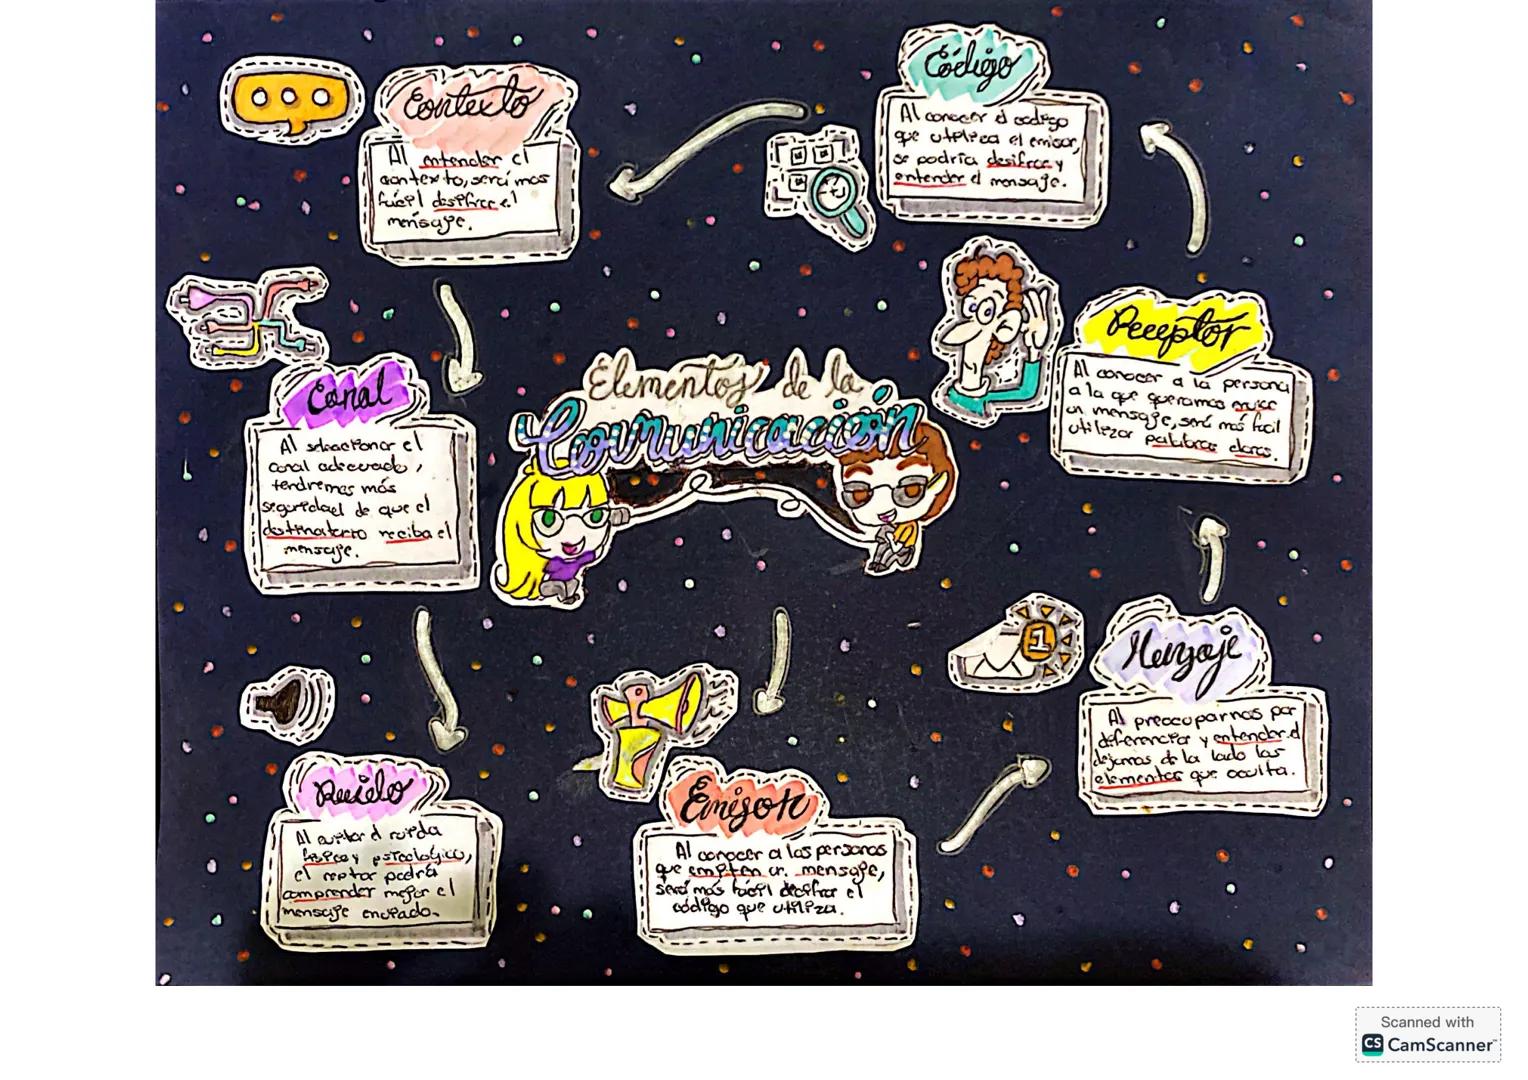 Elementos de la
Comunicación
Emisor
Al conocer a las personas
que emiten un mensaje,
será más fácil decifrar el
código que utiliza.
Mensaje
Al preocuparnos por
diferenciar y entender el
dejamos de la lado los
elementos que oculta.
Receptor
Al conocer a la persona
a la que queramos
un mensaje, será más fácil
utilizar palabras claras.
Código
Al conocer el codigo
que utiliza el emisor,
se podria desifrar y
entender el mensaje.
Contexto
Al entender el
contexto, será mas
fácil desifrar el
mensaje.
Canal
Al seleccionar el
canal adecuado,
tendremos más
seguridad de que el
destinatario reciba el
mensaje.
Ruido
Al evitar el ruido
fisico y psicologico,
el podría
comprender mejor el
mensaje enviado.
1
Scanned with
CS CamScanner